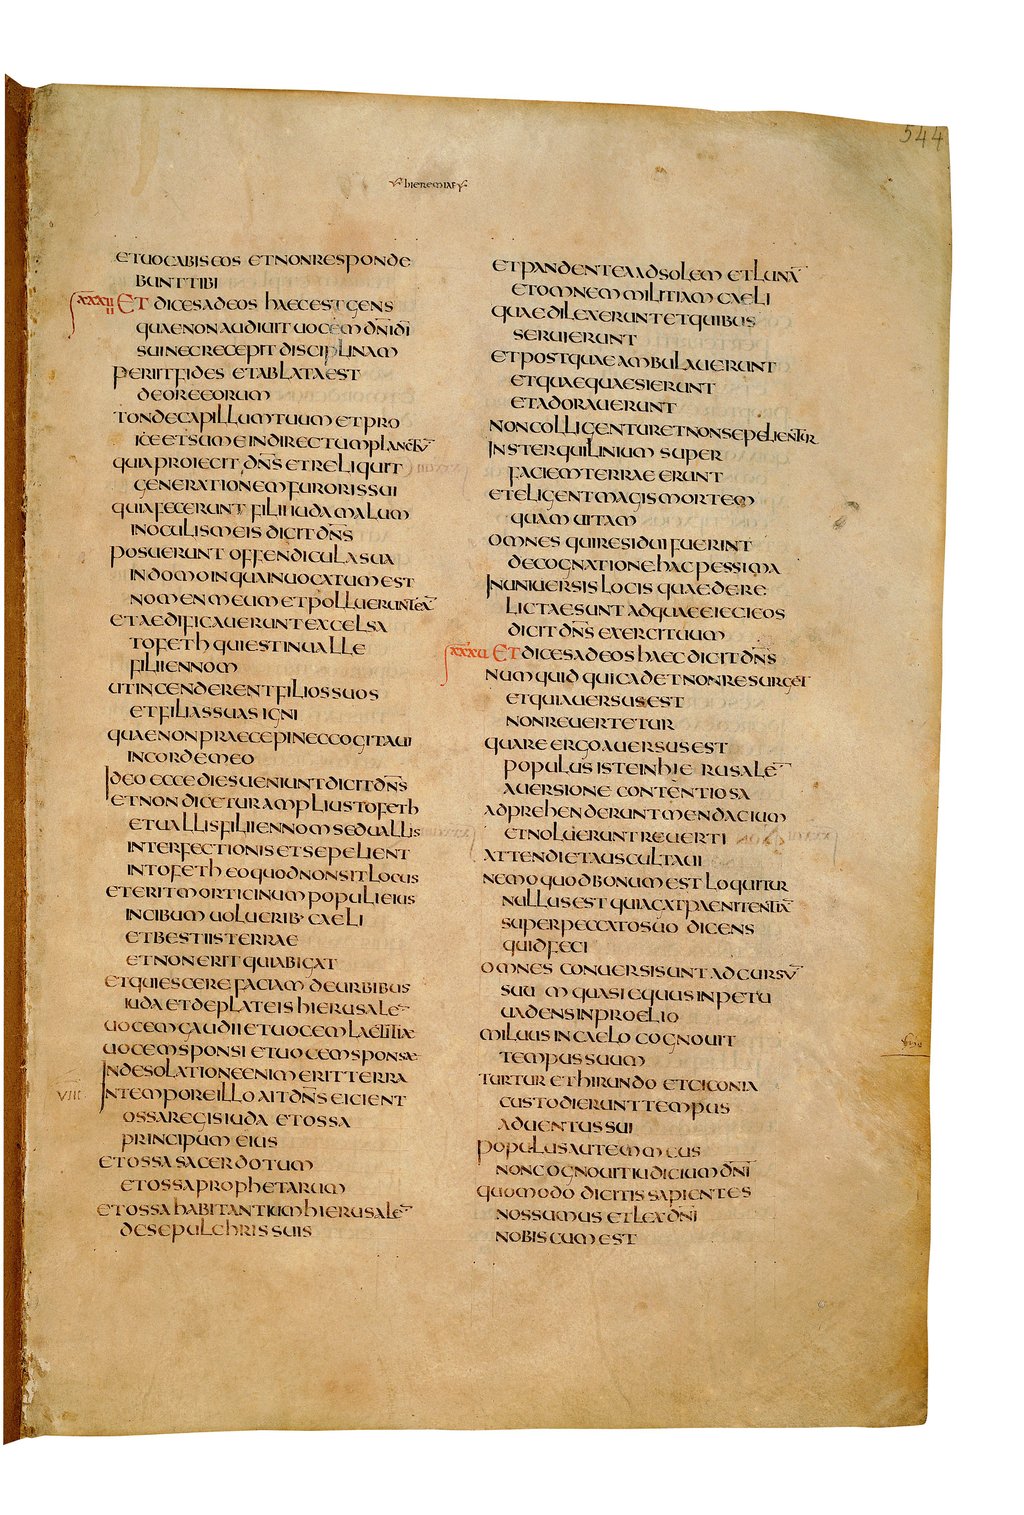 544
hieremias
ET UOCABIS EOS ET NON RESPONDE
BUNT TIBI
XXXIIII ET DICES AD EOS HAEC EST GENS
QUAE NON AUDIUIT UOCEM DNI DI
SUI NEC RECEPIT DISCIPLINAM
PERIIT FIDES ET ABLATA EST
DE ORE EORUM
TONDE CAPILLUM TUUM ET PRO
ICE ET SUME IN DIRECTUM PLANCTU
QUIA PROIECIT DNS ET RELIQUIT
GENERATIONEM FURORIS SUI
QUIA FECERUNT FILII IUDA MALUM
IN OCULIS MEIS DICIT DNS
POSUERUNT OFFENDICULA SUA
IN DOMO IN QUA INUOCATUM EST
NOMEN MEUM ET POLLUERUNT EA
ET AEDIFICAUERUNT EXCELSA
TOFETH QUI EST IN UALLE
FILII ENNOM
UT INCENDERENT FILIOS SUOS
ET FILIAS SUAS IGNI
QUAE NON PRAECEPI NEC COGITAUI
IN CORDE MEO
IDEO ECCE DIES UENIUNT DICIT DNS
ET NON DICETUR AMPLIUS TOFETH
ET UALLIS FILII ENNOM SED UALLIS
INTERFECTIONIS ET SEPELIENT
IN TOFETH EO QUOD NON SIT LOCUS
ET ERIT MORTICINUM POPULI EIUS
IN CIBUM UOLUCRIB· CAELI
ET BESTIIS TERRAE
ET NON ERIT QUI ABIGAT
ET QUIESCERE FACIAM DE URBIBUS
IUDA ET DE PLATEIS HIERUSALE
UOCEM GAUDII ET UOCEM LAETITIAE
UOCEM SPONSI ET UOCEM SPONSAE
IN DESOLATIONE ENIM ERIT TERRA
VIII IN TEMPORE ILLO AIT DNS EICIENT
OSSA REGIS IUDA ET OSSA
PRINCIPUM EIUS
ET OSSA SACERDOTUM
ET OSSA PROPHETARUM
ET OSSA HABITANTIUM HIERUSALE
DE SEPULCHRIS SUIS
ET PANDENT EA AD SOLEM ET LUNA
ET OMNEM MILITIAM CAELI
QUAE DILEXERUNT ET QUIBUS
SERUIERUNT
ET POST QUAE AMBULAUERUNT
ET QUAE QUAESIERUNT
ET ADORAUERUNT
NON COLLIGENTUR ET NON SEPELIENTUR
IN STERQUILINIUM SUPER
FACIEM TERRAE ERUNT
ET ELIGENT MAGIS MORTEM
QUAM UITAM
OMNES QUI RESIDUI FUERINT
DE COGNATIONE HAC PESSIMA
IN UNIUERSIS LOCIS QUAE DERE
LICTA SUNT AD QUAE EIECI EOS
DICIT DNS EXERCITUUM
XXXV ET DICES AD EOS HAEC DICIT DNS
NUMQUID QUI CADET NON RESURGET
ET QUI AUERSUS EST
NON REUERTETUR
QUARE ERGO AUERSUS EST
POPULUS ISTE IN HIERUSALE
AUERSIONE CONTENTIOSA
ADPREHENDERUNT MENDACIUM
ET NOLUERUNT REUERTI
ATTENDI ET AUSCULTAUI
NEMO QUOD BONUM EST LOQUITUR
NULLUS EST QUI AGAT PAENITENTIA
SUPER PECCATO SUO DICENS
QUID FECI
OMNES CONUERSI SUNT AD CURSU
SUUM QUASI EQUUS IN PETU
UADENS IN PROELIO
MILUUS IN CAELO COGNOUIT
TEMPUS SUUM
TURTUR ET HIRUNDO ET CICONIA
CUSTODIERUNT TEMPUS
ADUENTUS SUI
POPULUS AUTEM MEUS
NON COGNOUIT IUDICIUM DNI
QUOMODO DICITIS SAPIENTES
NOS SUMUS ET LEX DNI
NOBISCUM EST